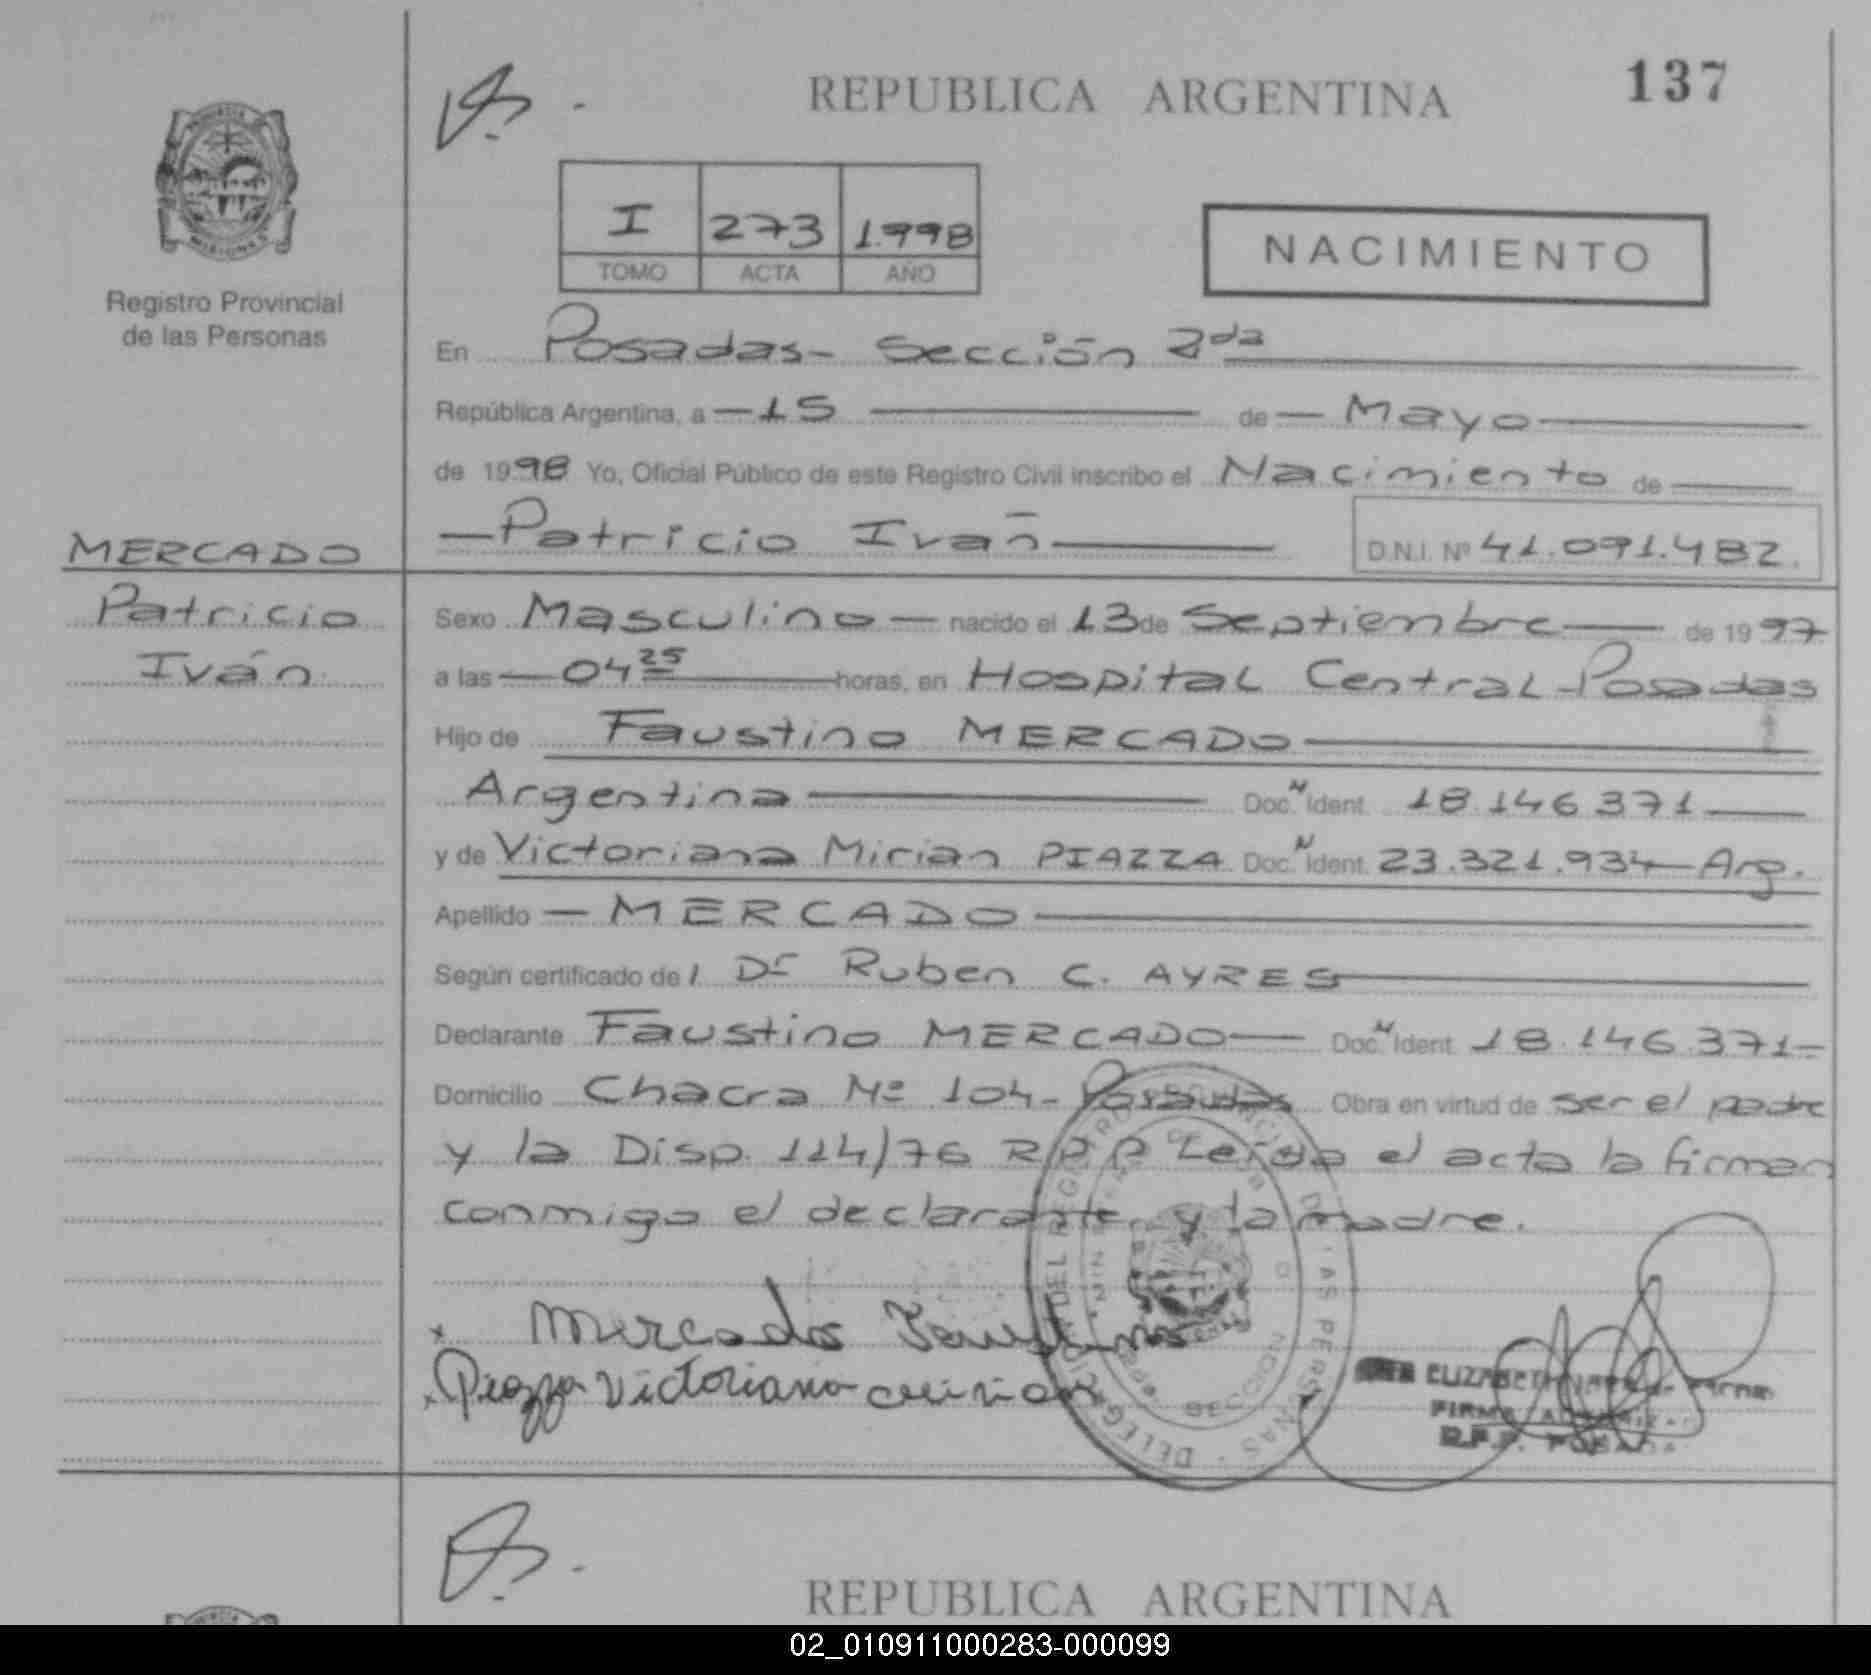 REPUBLICA ARGENTINA
137
I 273 1.998
TOMO ACTA AÑO
NACIMIENTO
PROVINCIA
MISIONES
Registro Provincial
de las Personas
En Posadas- Sección 2da
República Argentina, a -15 de - Mayo
de 1998 Yo, Oficial Público de este Registro Civil inscribo el Nacimiento de
- Patricio Iván D.N.I. Nº 41.091.482.
MERCADO
Patricio
Iván
Sexo Masculino - nacido el 13 de Septiembre de 1997
a las - 04 25 horas, en Hospital Central - Posadas
Hijo de Faustino MERCADO
Argentina Doc. N Ident. 18.146.371
y de Victoriana Mirian PIAZZA Doc. N Ident. 23.321.934- Arg.
Apellido - MERCADO
Según certificado del Dr Ruben C. AYRES
Declarante Faustino MERCADO - Doc. N Ident. 18.146.371-
Domicilio Chacra Nº 104- Posadas Obra en virtud de ser el padre
y la Disp. 114/76 R.P.P Leída el acta la firman
conmigo el declarante y la madre.
x Mercado Faustino
x Piazza Victoriana Mirian
FIRMA
R.P.P. POSADAS
REPUBLICA ARGENTINA
02_010911000283-000099